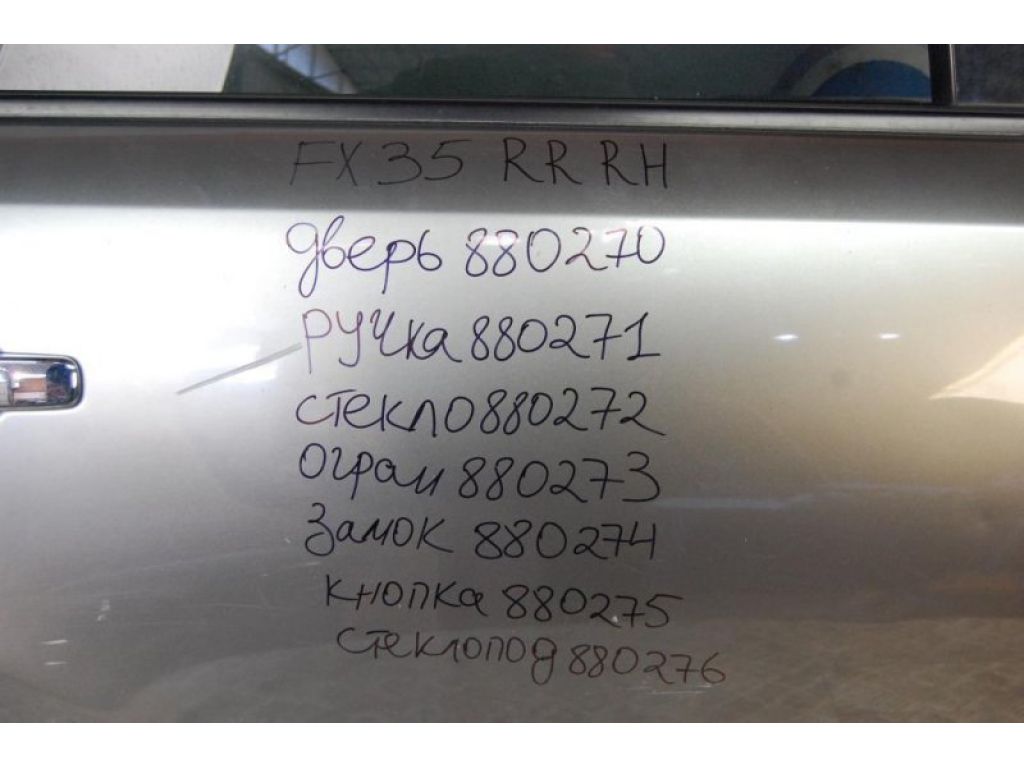 FX35 RR RH
дверь 880270
ручка 880271
стекло 880272
огран 880273
замок 880274
кнопка 880275
стеклопод 880276